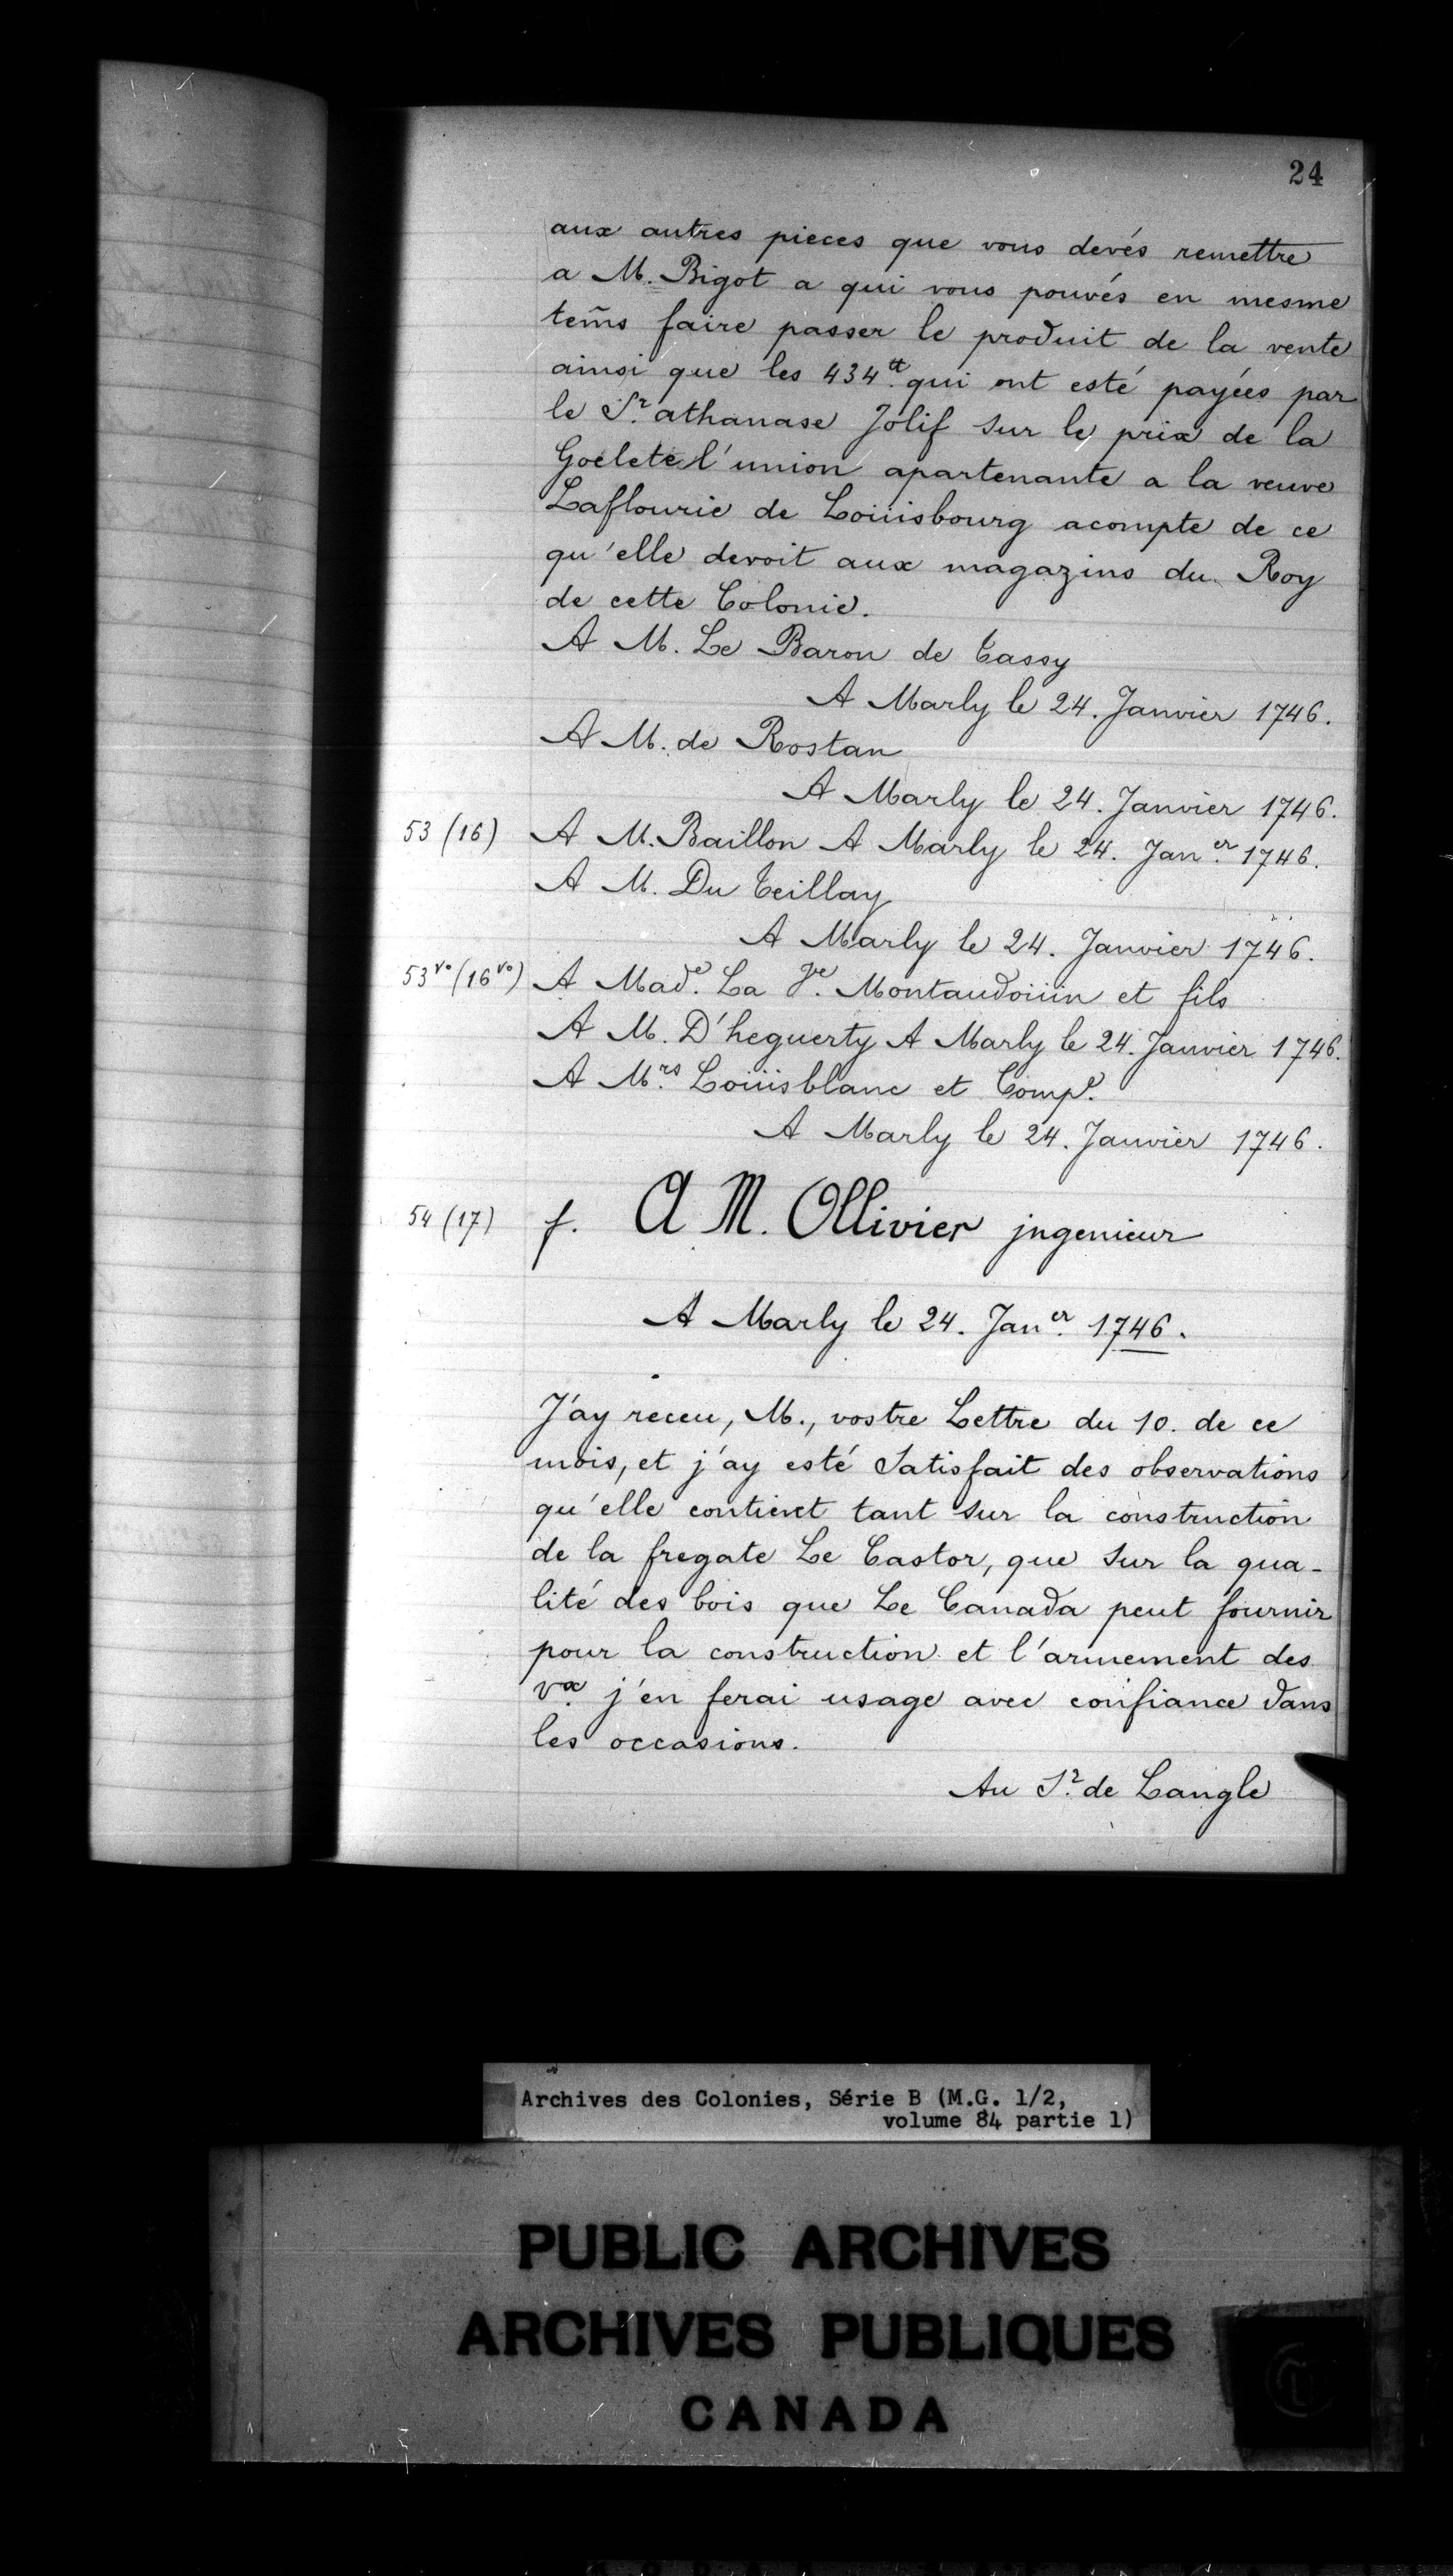 24
aux autres pieces que vous devés remettre
a M. Bigot a qui vous pouvés en mesme
tem̃s faire passer le produit de la vente
ainsi que les 434tt. qui ont esté payées par
le Sr. athanase Jolif sur le prix de la
Goelete l'union apartenante a la veuve
Laflourie de Loüisbourg acompte de ce
qu'elle devoit aux magazins du Roy
de cette Colonie.
A M. Le Baron de Cassy
A Marly le 24. Janvier 1746.
A M. de Rostan
A Marly le 24. Janvier 1746.
53 (16) A M. Baillon A Marly le 24. Janer. 1746.
A M. Du Teillay
A Marly le 24. Janvier 1746.
53vo (16vo) A Made. La Ve. Montaudoüin et fils
A M. D'heguerty A Marly le 24. Janvier 1746.
A Mrs. Loüisblanc et Compe.
A Marly le 24. Janvier 1746.
54 (17) f. A M. Ollivier jngenieur
A Marly le 24. Janer. 1746.
J'ay receu, M., vostre Lettre du 10. de ce
mois, et j'ay esté Satisfait des observations
qu'elle contient tant sur la construction
de la fregate Le Castor, que sur la qua-
lité des bois que Le Canada peut fournir
pour la construction et l'armement des
vx. j'en ferai usage avec confiance dans
les occasions.
Au Sr. de Langle
Archives des Colonies, Série B (M.G. 1/2,
volume 84 partie 1)
PUBLIC ARCHIVES
ARCHIVES PUBLIQUES
CANADA